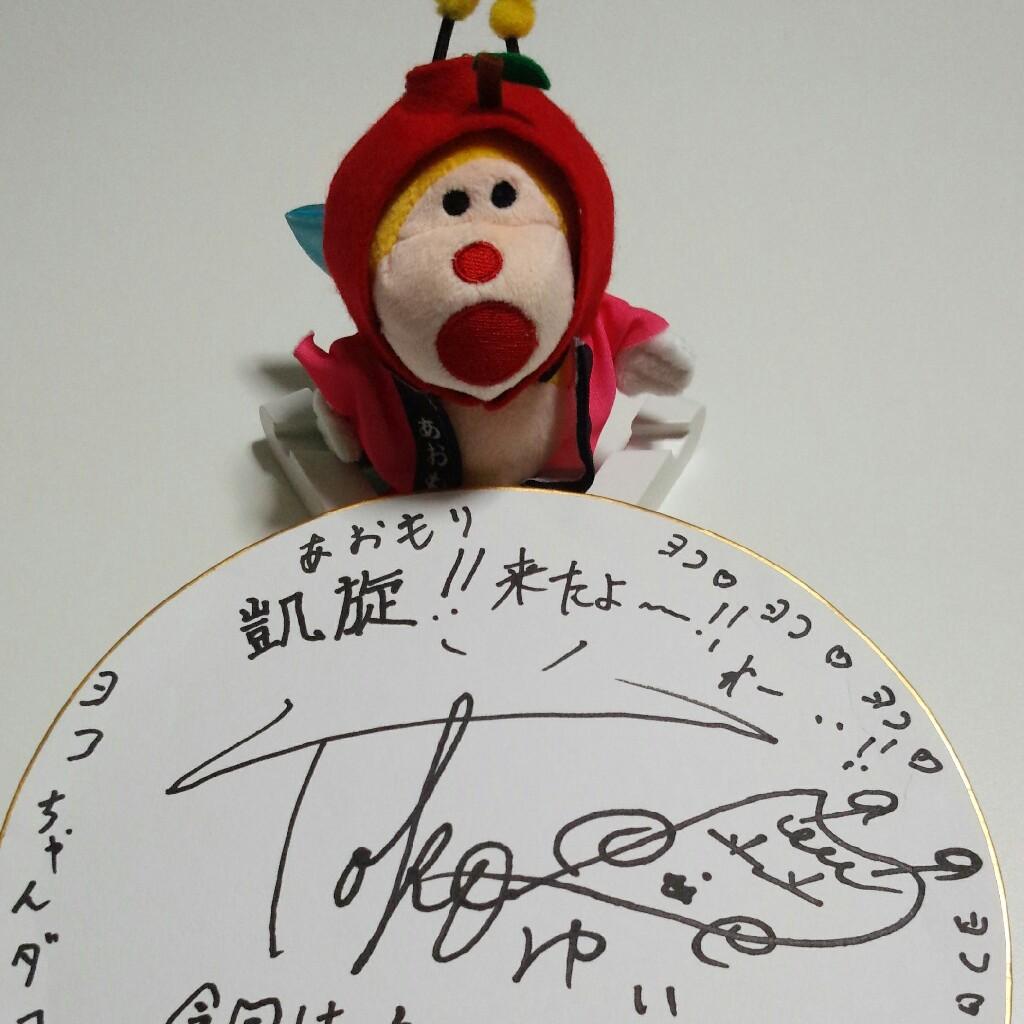 あおも
あおもり
凱旋!! 来たよ〜!! わー!!
ヨコ
ヨコ
ヨコ
ヨコ
ヨコちゃんダ
Toko
ゆい
今回は